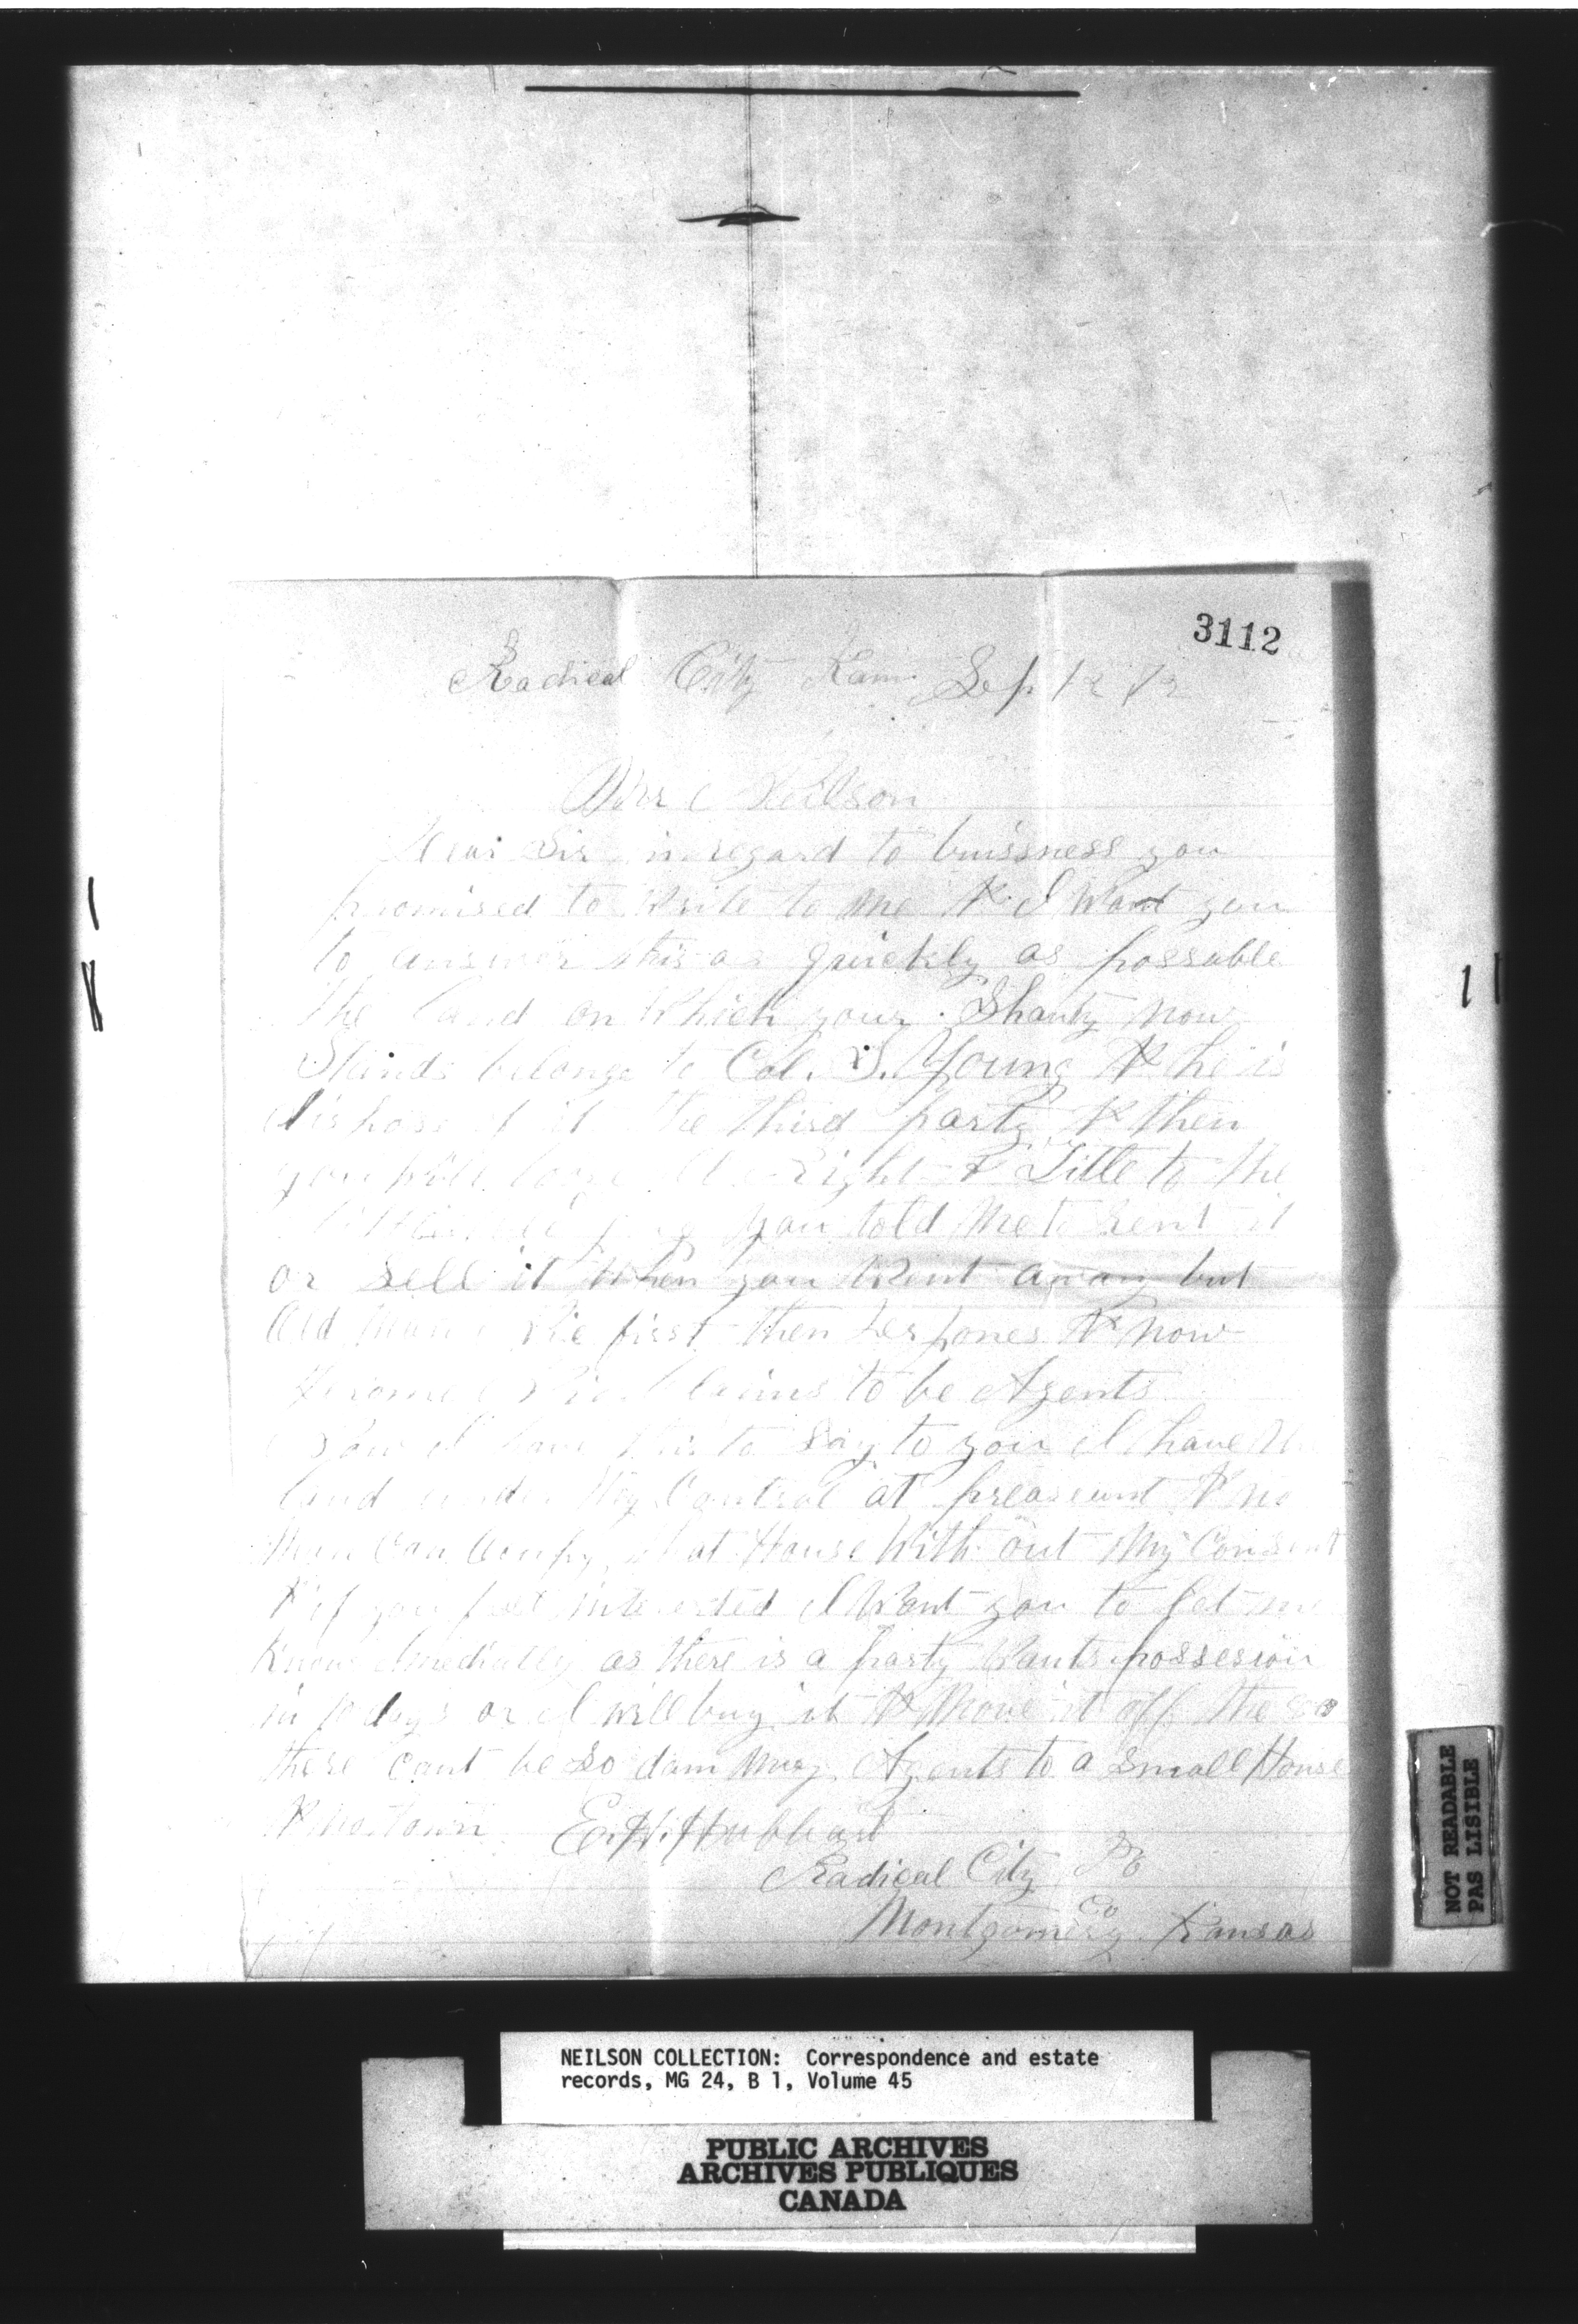 3112
Radical City Kan. Sep 12
Neilson
Dear Sir in regard to buissness you
promised to write to me & I Want you
to answer this as quickly as possable
The land on Which your Shanty now
Stands belongs to Col. Young & he is
the third party & then
you will Right & Title to the
you told Me to Rent it
or Sell it When you Went away but
Old Man first then & now
Claims to be Agents
Now I have this to Say to you I have the
land under My Control at preasunt & no
Man Can that House With out My Consent
& if you feel interested I Want you to let me
Know as there is a party Wants possesion
in 10 days or I will buy it & Move it off the
there cant be So dam Many Agents to a Small House
& no town E. H. Hubbard
Radical City
Montgomery Co Kansas
NOT READABLE
PAS LISIBLE
NEILSON COLLECTION: Correspondence and estate
records, MG 24, B 1, Volume 45
PUBLIC ARCHIVES
ARCHIVES PUBLIQUES
CANADA